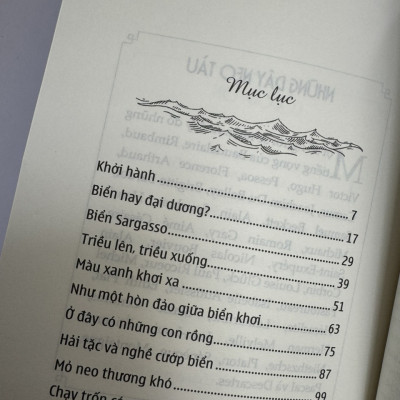 Mục lục
Khởi hành 7
Biển hay đại dương? 17
Biển Sargasso 29
Triều lên, triều xuống 39
Màu xanh khơi xa 51
Như một hòn đảo giữa biển khơi 63
Ở đây có những con rồng 75
Hải tặc và nghề cướp biển 87
Mỏ neo thương khó 99
Chạy trốn